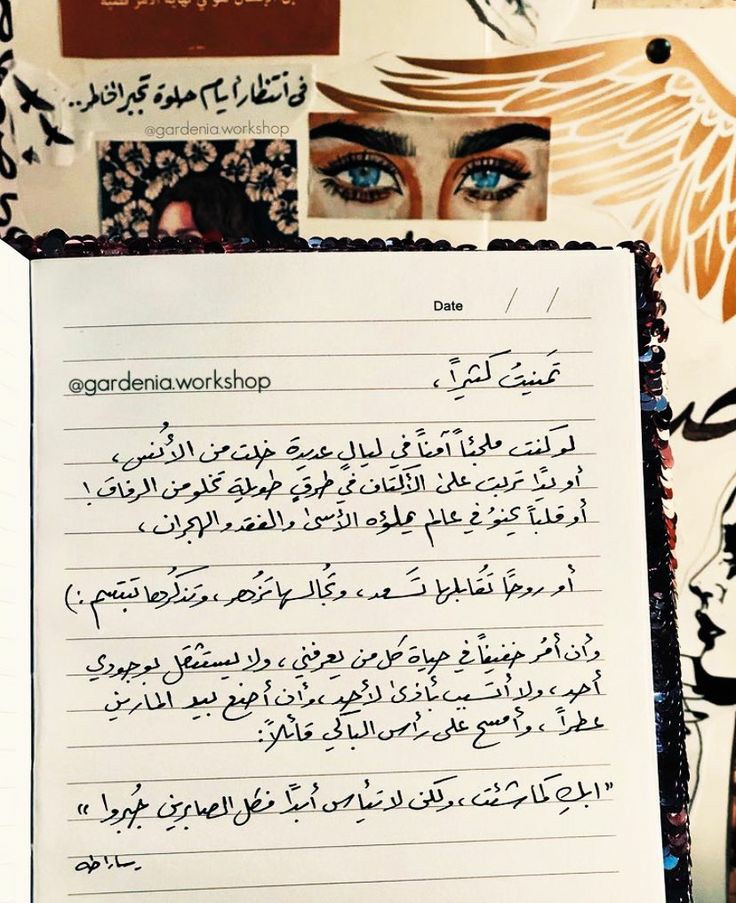 في انتظار أيام حلوة تجبر الخاطر..
@gardenia.workshop
Date / /
تمنيتُ كثيراً،
@gardenia.workshop
لو كنت ملجئاً آمناً في ليالٍ عديدة خلت من الأُنس،
أو يدًا تربت على الأكتاف في طرقٍ طويلة تخلو من الرفاق!
أو قلباً يحنوُ في عالم يملؤه الأسى والفقد والهجران،
أو روحًا تُقابلها تَسعد، وتُجالسها تزهر، وتذكُرها تبتسم :)
وأن أمُر خفيفاً في حياة كل من يعرفني، ولا يستثقل بوجودي
أحد، ولا أتسبب بأذىً لأحد، وأن أضع بيد المارين
عطراً، وأمسح على رأس الباكي قائلاً:
"ابكِ كما شئت، ولكن لا تيأس أبدًا فكل الصابرين جُبروا"
يسارا طه